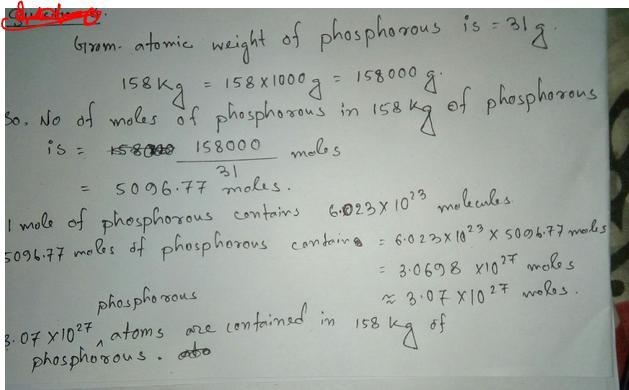 Grom. atomic weight of phosphorous is = 31 g.
158 Kg = 158 X 1000 g = 158000 g.
So. No of moles of phosphorous in 158 kg of phosphorous
is = 158000 / 31 moles
= 5096.77 moles.
1 mole of phosphorous contains 6.023 X 10²³ molecules.
5096.77 moles of phosphorous contains = 6.023 X 10²³ X 5096.77 moles
= 3.0698 X10²⁷ moles
≈ 3.07 X10²⁷ moles.
3.07 X10²⁷ phosphorous atoms are contained in 158 kg of
phosphorous.